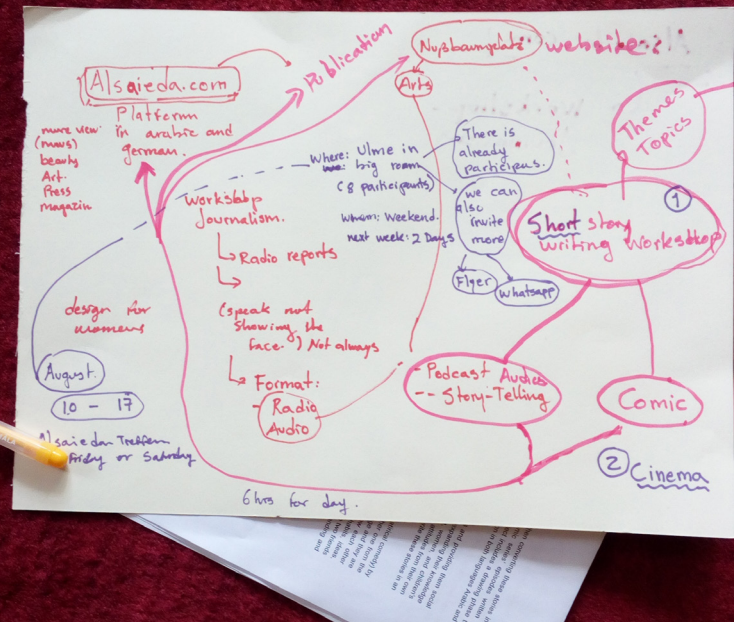 Alsaieda.com
Platform
in arabic and
german.
more view
(news)
beauty
Art.
Press
magazin
Publication
Nußbaumplatz
website:
Arts
Themes
Topics
Where: Ulme in
big room
(8 participants)
There is
already
participus.
we can
also
invite
more
whem: Weekend.
next week: 2 Days
Flyer
whatsapp
1
Short story
writing Workshop
Workshop
Journalism.
Radio reports
(speak not
showing the
face.) Not always
Format:
- Radio
Audio
design for
womens
August.
10 - 17
Alsaieda Treffen
Friday or Saturday
- Podcast Audios
-- Story-Telling
Comic
2 Cinema
6 hrs for day.